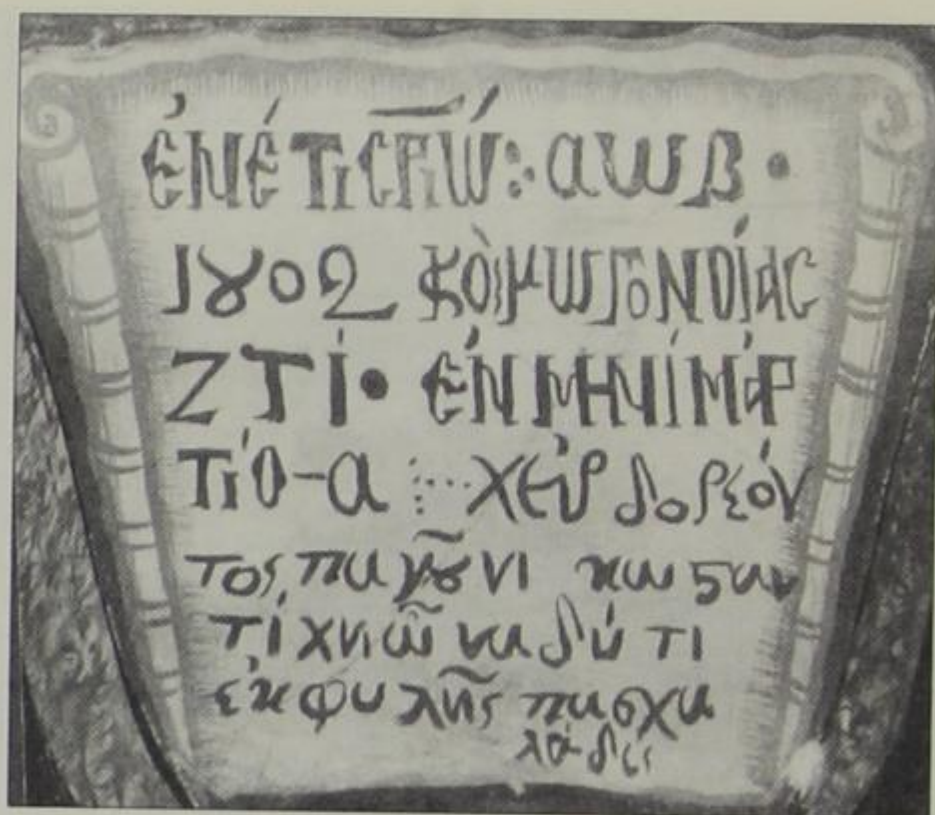 ἐΝέΤι CΡΙώ: αωβ·
1802 κὸσμωγοΝΟίας
ΖΤί· ἐΝ ΜΗΝί ΜάΡ
Τίο-α χεὶρ δορεόν
τος παγȣ͂νι και ϛαν
τί χνιῶ να δύ τι
ἐκ φυλῆς πασχα
λάδει